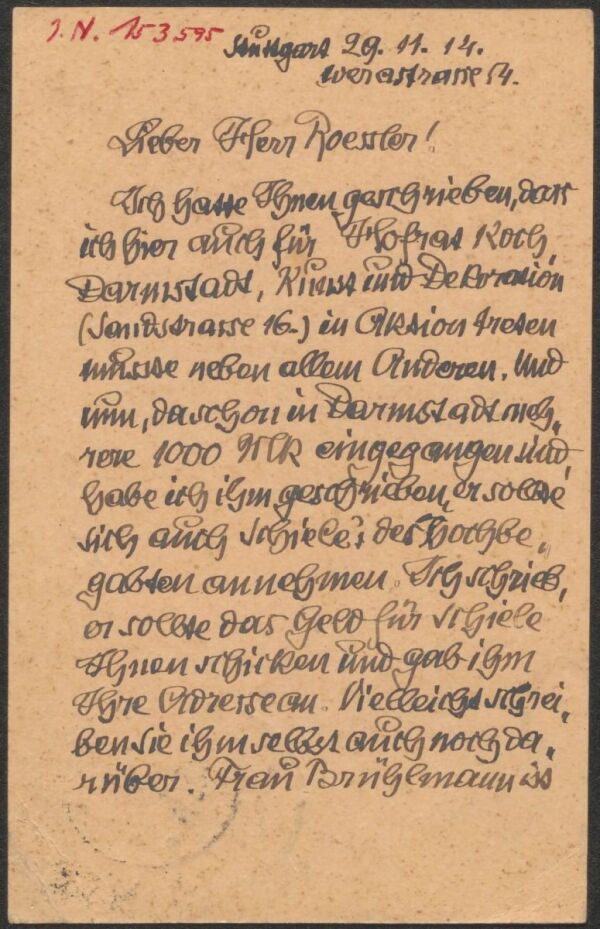 J.N. 153595
Stuttgart 29.11.14.
Werastrasse 54.
Lieber Herr Roessler!
Ich hatte Ihnen geschrieben, dass
ich hier auch für Hofrat Koch
Darmstadt, Kunst und Dekoration
(Sandstrasse 16.) in Aktion treten
müsste neben allem Anderen. Und
nun, da schon in Darmstadt meh„
rere 1000 Mk eingegangen sind,
habe ich ihm geschrieben, er sollte
sich auch Schiele's des Hochbe„
gabten annehmen. Ich schrieb,
er sollte das Geld für Schiele
Ihnen schicken und gab ihm
Ihre Adresse an. Vielleicht schrei„
ben sie ihm selbst auch noch da„
rüber. Frau Brühlmann ist